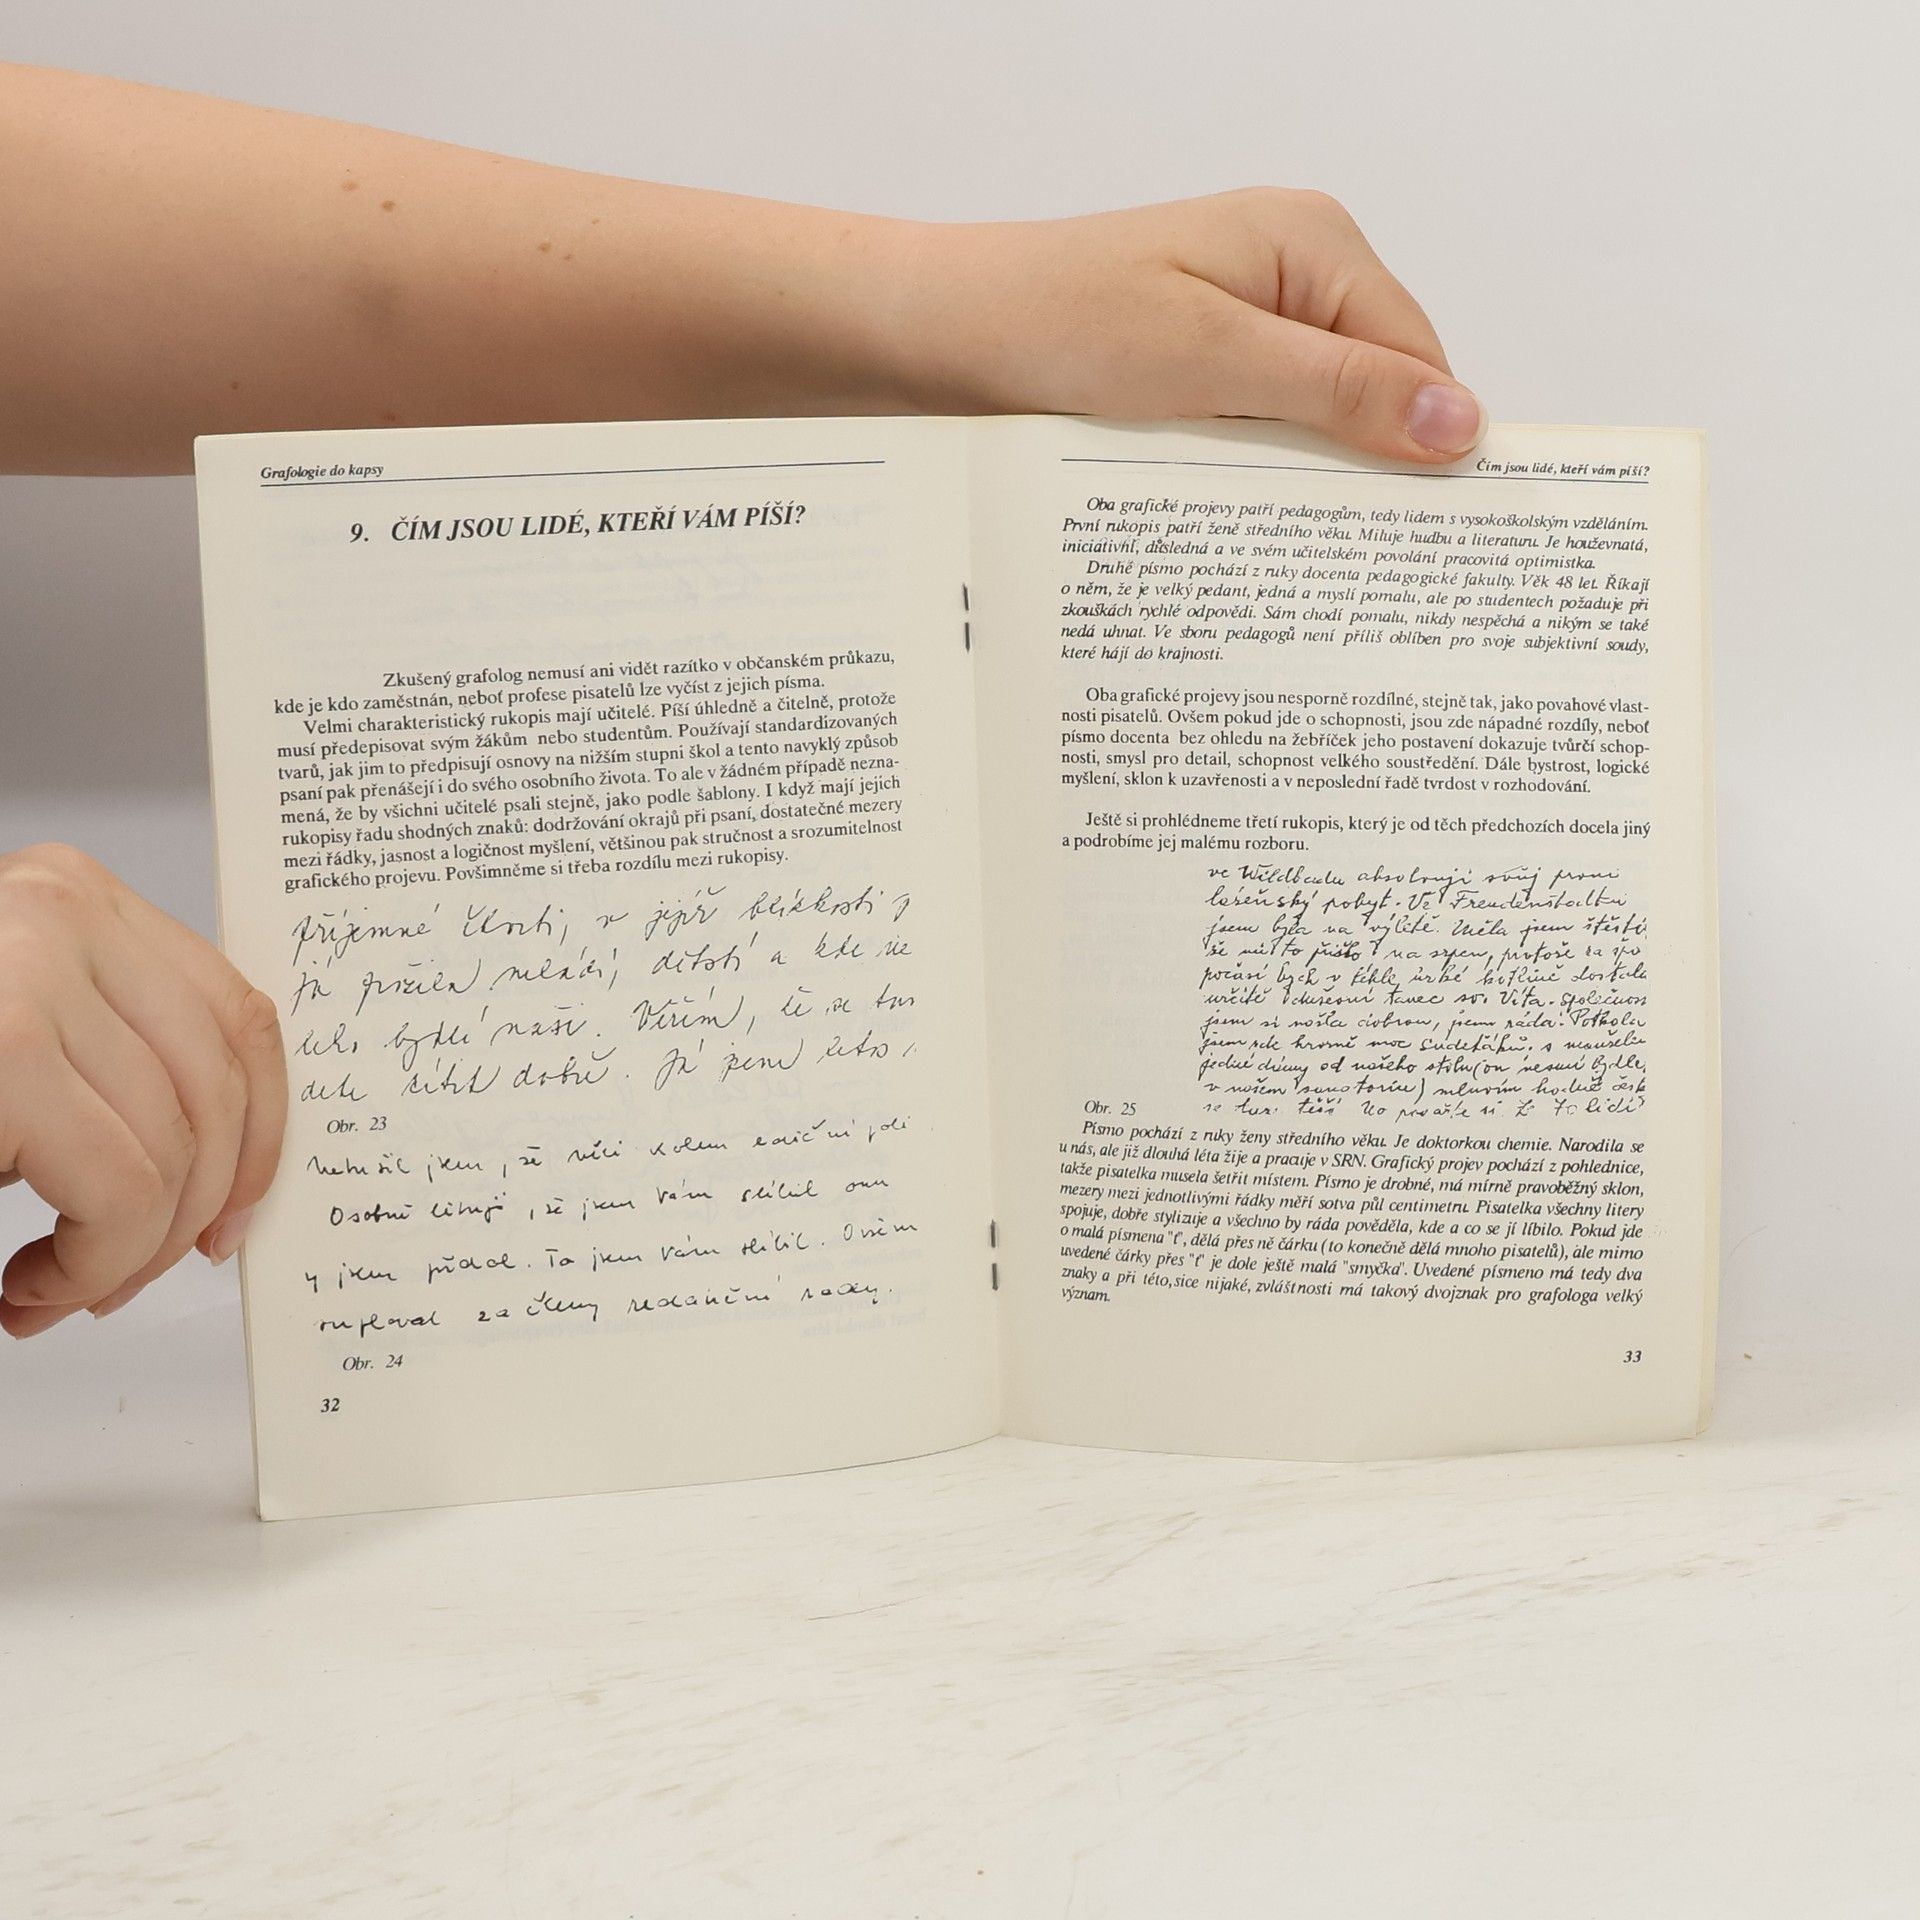 Grafologie do kapsy
9. ČÍM JSOU LIDÉ, KTEŘÍ VÁM PÍŠÍ?
Zkušený grafolog nemusí ani vidět razítko v občanském průkazu,
kde je kdo zaměstnán, neboť profese pisatelů lze vyčíst z jejich písma.
Velmi charakteristický rukopis mají učitelé. Píší úhledně a čitelně, protože
musí předepisovat svým žákům nebo studentům. Používají standardizovaných
tvarů, jak jim to předpisují osnovy na nižším stupni škol a tento navyklý způsob
psaní pak přenášejí i do svého osobního života. To ale v žádném případě nezna-
mená, že by všichni učitelé psali stejně, jako podle šablony. I když mají jejich
rukopisy řadu shodných znaků: dodržování okrajů při psaní, dostatečné mezery
mezi řádky, jasnost a logičnost myšlení, většinou pak stručnost a srozumitelnost
grafického projevu. Povšimněme si třeba rozdílu mezi rukopisy.
příjemné čtvrti, v jejíž blízkosti
já prožila mládí, dětství a kde
bydlí naši. Věřím, že se
dete cítit dobře. Já jsem letos
Obr. 23
Netušil jsem, že věci kolem ediční
Osobně lituji, že jsem Vám slíbil
jsem přidal. To jsem Vám slíbil. Ovšem
za členy redakční rady.
Obr. 24
32
Čím jsou lidé, kteří vám píší?
Oba grafické projevy patří pedagogům, tedy lidem s vysokoškolským vzděláním.
První rukopis patří ženě středního věku. Miluje hudbu a literaturu. Je houževnatá,
iniciativní, důsledná a ve svém učitelském povolání pracovitá optimistka.
Druhé písmo pochází z ruky docenta pedagogické fakulty. Věk 48 let. Říkají
o něm, že je velký pedant, jedná a myslí pomalu, ale po studentech požaduje při
zkouškách rychlé odpovědi. Sám chodí pomalu, nikdy nespěchá a nikým se také
nedá uhnat. Ve sboru pedagogů není příliš oblíben pro svoje subjektivní soudy,
které hájí do krajnosti.
Oba grafické projevy jsou nesporně rozdílné, stejně tak, jako povahové vlast-
nosti pisatelů. Ovšem pokud jde o schopnosti, jsou zde nápadné rozdíly, neboť
písmo docenta bez ohledu na žebříček jeho postavení dokazuje tvůrčí schop-
nosti, smysl pro detail, schopnost velkého soustředění. Dále bystrost, logické
myšlení, sklon k uzavřenosti a v neposlední řadě tvrdost v rozhodování.
Ještě si prohlédneme třetí rukopis, který je od těch předchozích docela jiný
a podrobíme jej malému rozboru.
ve Wildbadu absolvuji svůj první
lázeňský pobyt. Ve Freudenstadtu
jsem byla na výletě. Měla jsem štěstí,
že mi to přišlo na srpen, protože za
počasí bych v téhle úzké kotlině dostala
určitě tanec sv. Víta. Společnost
jsem si našla dobrou, jsem ráda. Potkala
jsem zde hrozně moc Sudeťáků. s manželem
jedné dámy od našeho stolu (on nesmí bydlet
v našem sanatoriu) mluvím hodně česk
se tu lidí
Obr. 25
Písmo pochází z ruky ženy středního věku. Je doktorkou chemie. Narodila se
u nás, ale již dlouhá léta žije a pracuje v SRN. Grafický projev pochází z pohlednice,
takže pisatelka musela šetřit místem. Písmo je drobné, má mírně pravoběžný sklon,
mezery mezi jednotlivými řádky měří sotva půl centimetru. Pisatelka všechny litery
spojuje, dobře stylizuje a všechno by ráda pověděla, kde a co se jí líbilo. Pokud jde
o malá písmena "t", dělá přes ně čárku (to konečně dělá mnoho pisatelů), ale mimo
uvedené čárky přes "t" je dole ještě malá "smyčka". Uvedené písmeno má tedy dva
znaky a při této,sice nijaké, zvláštnosti má takový dvojznak pro grafologa velký
význam.
33